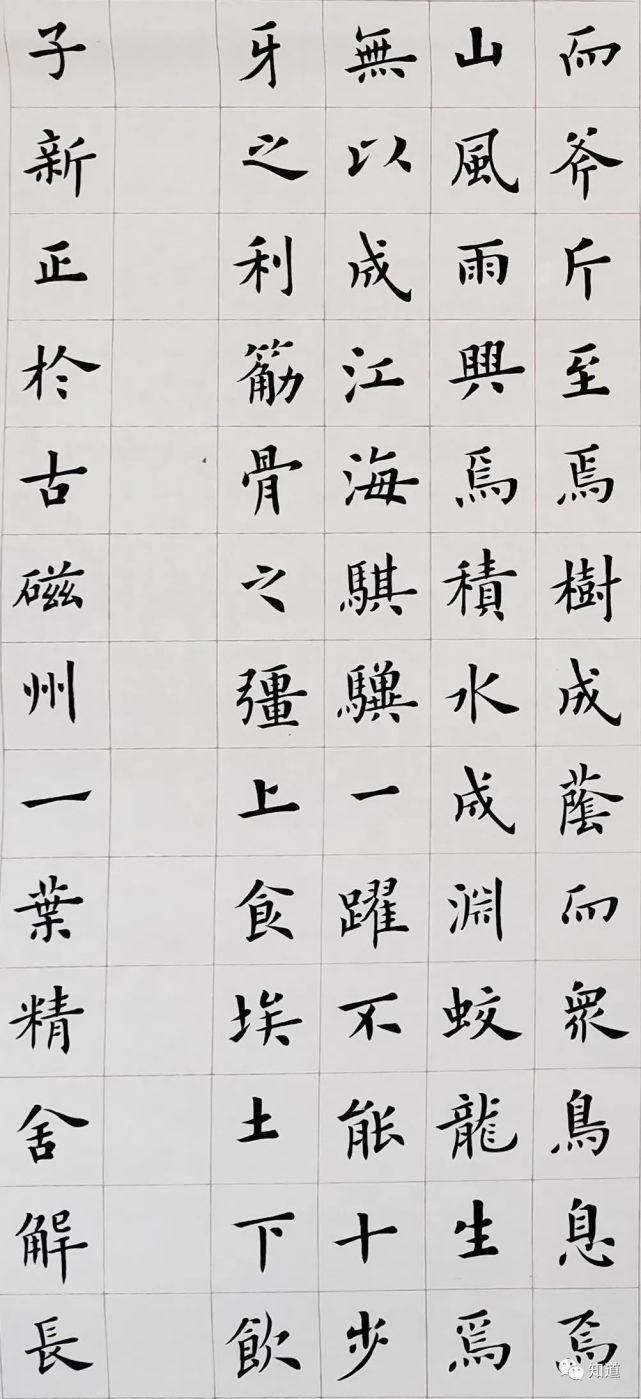 而斧斤至焉樹成蔭而衆鳥息焉
山風雨興焉積水成淵蛟龍生焉
無以成江海騏驥一躍不能十步
牙之利筋骨之彊上食埃土下飲
子新正於古磁州一葉精舍解長
知道